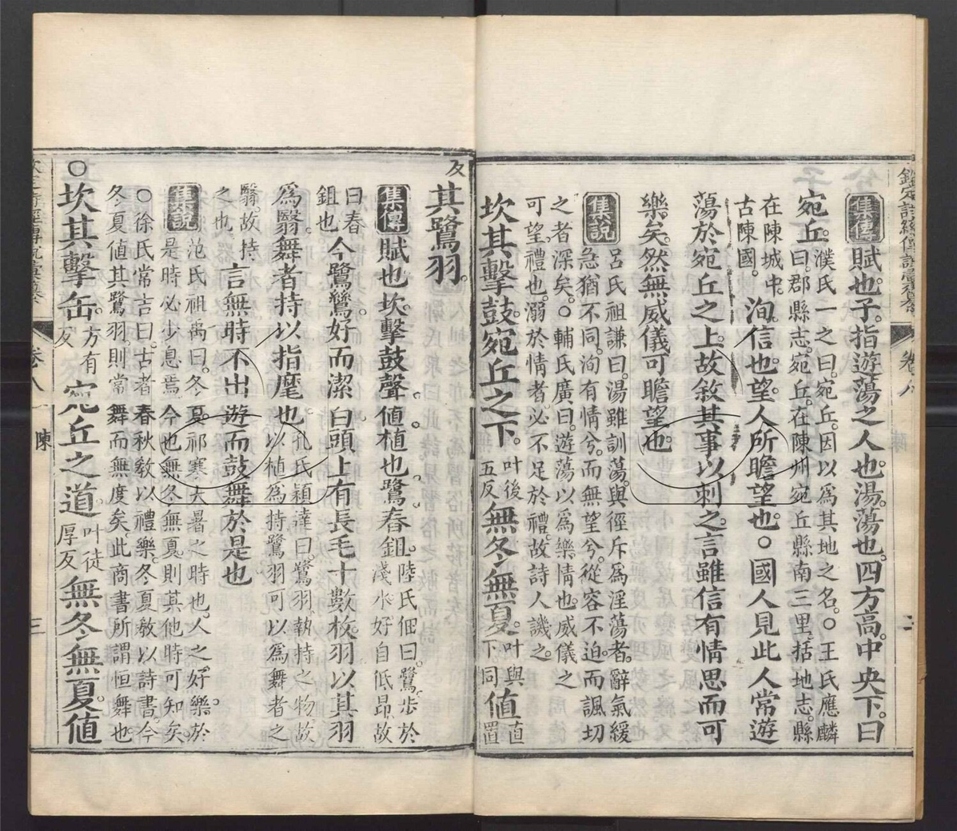 集傳賦也。子指遊蕩之人也。湯蕩也。四方高。中央下。曰
宛丘。濮氏一之曰。宛丘。因以爲其地之名。○王氏應麟
曰。郡縣志。宛丘。在陳州宛丘縣南三里。括地志。縣
在陳城中。
古陳國。洵信也。望人所瞻望也。○國人見此人常遊
蕩於宛丘之上。故敘其事以刺之。言雖信有情思而可
樂矣。然無威儀可瞻望也
集說呂氏祖謙曰。湯雖訓蕩。與徑斥爲淫蕩者。辭氣緩
急猶不同。洵有情兮。而無望兮。從容不迫。而諷切
之者深矣。○輔氏廣曰。遊蕩以爲樂情也。威儀之
可望。禮也。溺於情者。必不足於禮。故詩人譏之。
坎其擊鼓。宛丘之下。叶後
五反無冬無夏。叶與
下同值直
置
反其鷺羽。
集傳賦也。坎擊鼓聲。值植也。鷺舂鉏。陸氏佃曰。鷺步於
淺水。好自低昂。故
曰舂
鉏也今鷺鷥好而潔白。頭上有長毛十數枚。羽以其羽
爲翳。舞者持以指麾也。孔氏穎達曰。鷺羽執持之物。故
以植爲持。鷺羽可以爲舞者之
翳。故持
之也言無時不出遊而鼓舞於是也
集說范氏祖禹曰。冬夏祁寒大暑之時也。人之好樂於
是時必少息焉。今也無冬無夏。則其他時可知矣
○徐氏常吉曰。古者春秋敎以禮樂。冬夏敎以詩書。今
冬夏值其鷺羽。則常舞而無度矣。此商書所謂恒舞也
○坎其擊缶。方有
反宛丘之道。叶徒
厚反無冬無夏。值
卷八
陳
二
卷八
陳
三